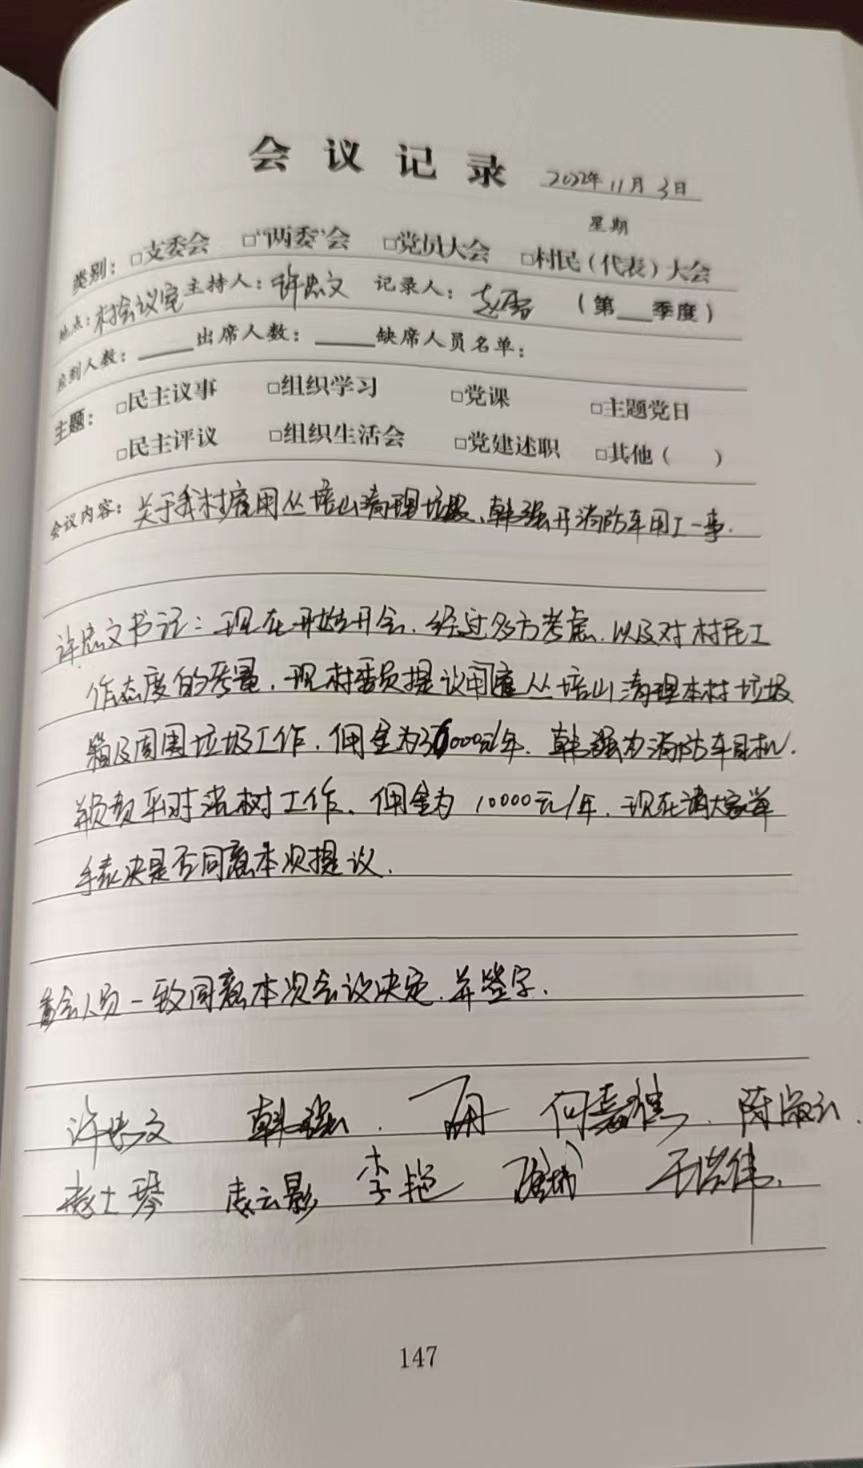 会议记录 2022年11月3日
星期
类别：□支委会 □“两委”会 □党员大会 □村民（代表）大会
地点：村会议室 主持人：许忠文 记录人： （第___季度）
应到人数：____ 出席人数：____ 缺席人员名单：
主题：□民主议事 □组织学习 □党课 □主题党日
□民主评议 □组织生活会 □党建述职 □其他（ ）
会议内容：关于我村雇用丛培山清理垃圾、韩强开消防车用工一事.
许忠文书记：现在开始开会.经过多方考虑.以及对村民工
作态度的考量，现村委员提议 丛培山清理本村垃圾
箱及周围垃圾工作.佣金为 元/年.韩强为消防车司机.
并负责平时浇树工作、佣金为10000元/年.现在请大家举
手表决是否同意本次提议.
人员一致同意本次会议决定.并签字.
许忠文 韩强.
李艳